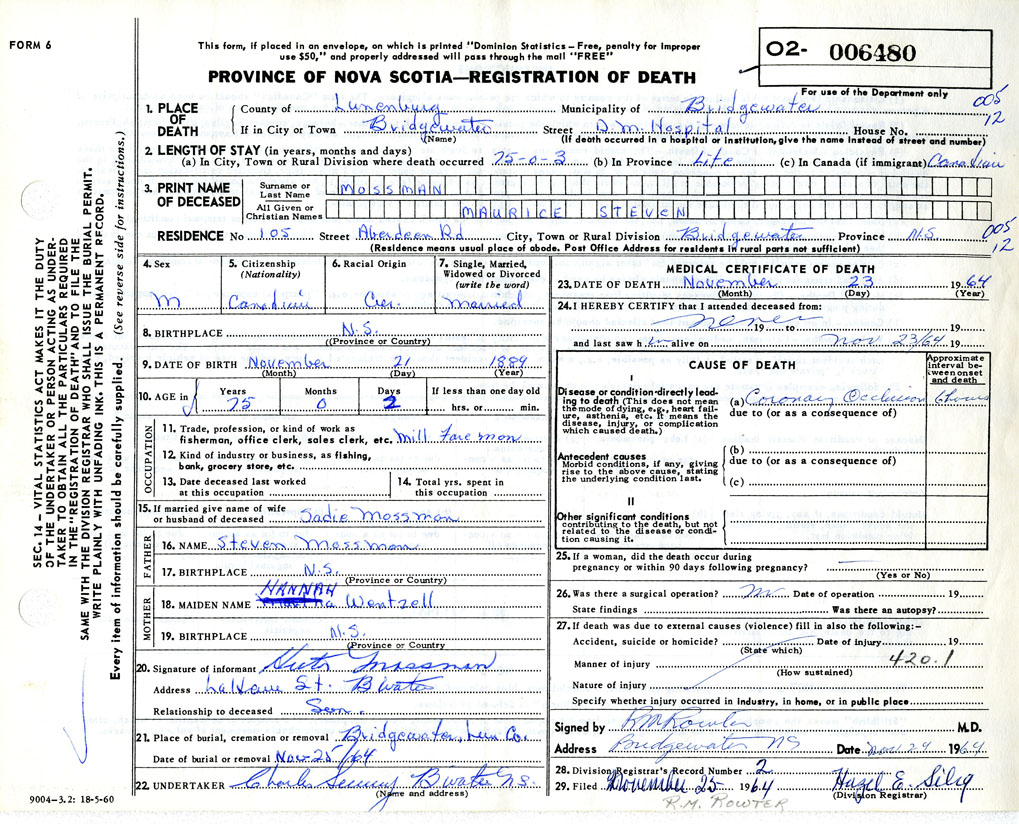 FORM 6
This form, if placed in an envelope, on which is printed "Dominion Statistics – Free, penalty for improper
use $50," and properly addressed will pass through the mail "FREE"
PROVINCE OF NOVA SCOTIA—REGISTRATION OF DEATH
02- 006480
For use of the Department only
005
12
1. PLACE OF DEATH
County of Lunenburg Municipality of Bridgewater
If in City or Town Bridgewater Street D.M. Hospital House No.
(Name) (If death occurred in a hospital or institution, give the name instead of street and number)
2. LENGTH OF STAY (in years, months and days)
(a) In City, Town or Rural Division where death occurred 75-0-3 (b) In Province Life (c) In Canada (if immigrant) Canadian
3. PRINT NAME OF DECEASED
Surname or Last Name MOSSMAN
All Given or Christian Names MAURICE STEVEN
RESIDENCE No 105 Street Aberdeen Rd City, Town or Rural Division Bridgewater Province N.S
005
12
(Residence means usual place of abode. Post Office Address for residents in rural parts not sufficient)
4. Sex
M
5. Citizenship
(Nationality)
Canadian
6. Racial Origin
Ger.
7. Single, Married,
Widowed or Divorced
(write the word)
Married
8. BIRTHPLACE N.S.
((Province or Country)
9. DATE OF BIRTH November 21 1889
(Month) (Day) (Year)
10. AGE in
Years Months Days If less than one day old
75 0 2 hrs. or min.
OCCUPATION
11. Trade, profession, or kind of work as
fisherman, office clerk, sales clerk, etc. Mill Foreman
12. Kind of industry or business, as fishing,
bank, grocery store, etc.
13. Date deceased last worked
at this occupation
14. Total yrs. spent in
this occupation
15. If married give name of wife
or husband of deceased Sadie Mossman
FATHER
16. NAME Steven Mossman
17. BIRTHPLACE N.S.
(Province or Country)
MOTHER
HANNAH
18. MAIDEN NAME Wentzell
19. BIRTHPLACE N.S.
(Province or Country
20. Signature of informant Mossman
Address LaHave St. B'water
Relationship to deceased Son.
21. Place of burial, cremation or removal Bridgewater, Lun Co.
Date of burial or removal Nov-25/64
22. UNDERTAKER Charles B'water N.S.
(Name and address)
9004-3.2: 18-5-60
MEDICAL CERTIFICATE OF DEATH
23. DATE OF DEATH November 23 19 64
(Month) (Day) (Year)
24. I HEREBY CERTIFY that I attended deceased from:
never 19 to 19
and last saw h im alive on Nov 23/64 19
CAUSE OF DEATH
Approximate
interval be-
tween onset
and death
I
Disease or condition directly lead-
ing to death (This does not mean
the mode of dying, e.g., heart fail-
ure, asthenia, etc. It means the
disease, injury, or complication
which caused death.)
(a) Coronary Occlusion 6 hours
due to (or as a consequence of)
Antecedent causes
Morbid conditions, if any, giving
rise to the above cause, stating
the underlying condition last.
(b)
due to (or as a consequence of)
(c)
II
Other significant conditions
contributing to the death, but not
related to the disease or condi-
tion causing it.
25. If a woman, did the death occur during
pregnancy or within 90 days following pregnancy?
(Yes or No)
26. Was there a surgical operation? No Date of operation 19
State findings Was there an autopsy?
27. If death was due to external causes (violence) fill in also the following:–
Accident, suicide or homicide? Date of injury 19
(State which)
420.1
Manner of injury
(How sustained)
Nature of injury
Specify whether injury occurred in industry, in home, or in public place
Signed by R M Rowter M.D.
Address Bridgewater NS Date Nov. 24 1964
28. Division Registrar's Record Number 2
29. Filed November 25 1964 Hazel E.
(Division Registrar)
R.M. ROWTER
SEC. 14 – VITAL STATISTICS ACT MAKES IT THE DUTY
OF THE UNDERTAKER OR PERSON ACTING AS UNDER-
TAKER TO OBTAIN ALL THE PARTICULARS REQUIRED
IN THE "REGISTRATION OF DEATH" AND TO FILE THE
SAME WITH THE DIVISION REGISTRAR WHO SHALL ISSUE THE BURIAL PERMIT.
WRITE PLAINLY WITH UNFADING INK. THIS IS A PERMANENT RECORD.
Every item of information should be carefully supplied. (See reverse side for instructions.)